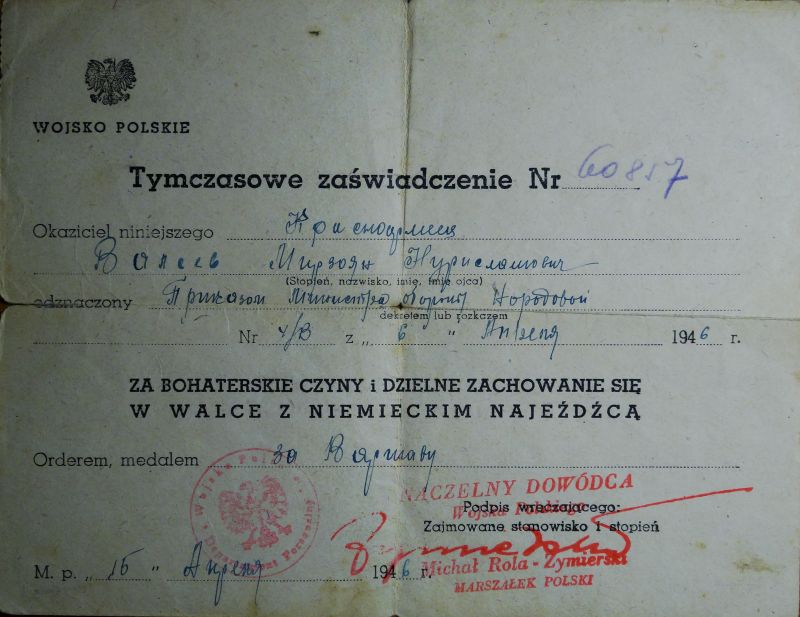 WOJSKO POLSKIE
Tymczasowe zaświadczenie Nr 60857
Okaziciel niniejszego Красноармеец
Валеев Мирзаян Нурисламович
(Stopień, nazwisko, imię, imię ojca)
odznaczony Приказом Министра обороны Народовой
dekretem lub rozkazem
Nr 4/В z „ 6 " Апреля 1946 r.
ZA BOHATERSKIE CZYNY i DZIELNE ZACHOWANIE SIĘ
W WALCE Z NIEMIECKIM NAJEŹDŹCĄ
Orderem, medalem за Варшаву
Wojska Polskiego
Departament Personalny
NACZELNY DOWÓDCA
Wojska Polskiego
Podpis wręczającego:
Zajmowane stanowisko i stopień
Michał Rola-Żymierski
MARSZAŁEK POLSKI
M. p. „ 15 " Апреля 1946 r.